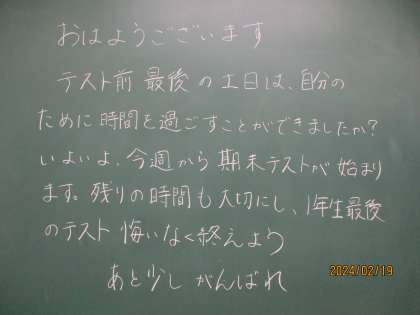 おはようございます
テスト前 最後の土日は、自分の
ために時間を過ごすことができましたか?
いよいよ、今週から期末テストが始まり
ます。残りの時間も大切にし、1年生最後
のテスト 悔いなく終えよう
あと少し がんばれ
2024/02/19